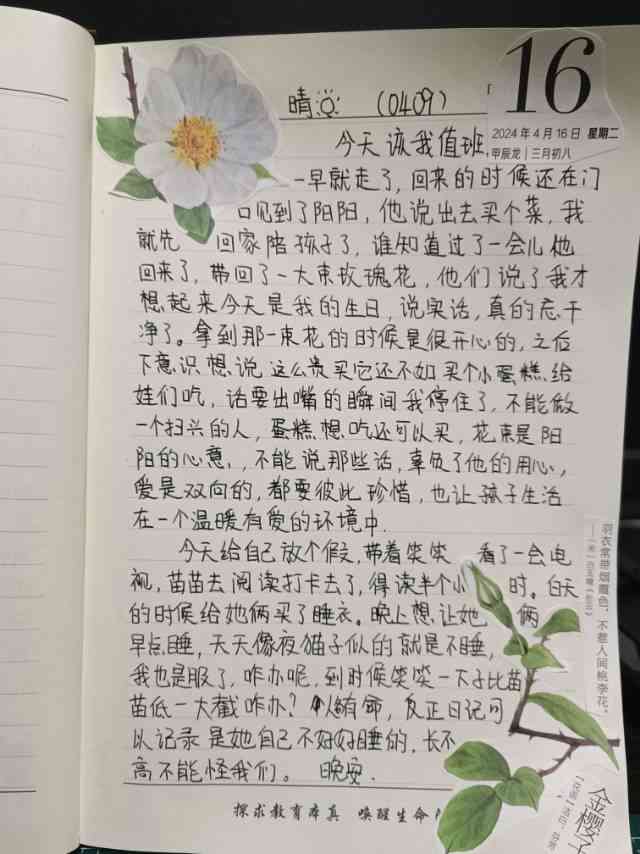 16
2024年4月16日 星期二
甲辰龙｜三月初八
晴 (0409)
今天该我值班,
一早就走了,回来的时候还在门
口见到了阳阳,他说出去买个菜,我
就先 回家陪孩子了,谁知道过了一会儿他
回来了,带回了一大束玫瑰花,他们说了我才
想起来今天是我的生日,说实话,真的忘干
净了。拿到那一束花的时候是很开心的,之后
下意识想说这么贵买它还不如买个小蛋糕给
娃们吃,话要出嘴的瞬间我停住了,不能做
一个扫兴的人,蛋糕想吃还可以买,花束是阳
阳的心意,不能说那些话,辜负了他的用心,
爱是双向的,都要彼此珍惜,也让孩子生活
在一个温暖有爱的环境中.
今天给自己放个假,带着笑笑 看了一会电
视,苗苗去阅读打卡去了,得读半个小 时。白天
的时候给她俩买了睡衣。晚上想让她 俩
早点睡,天天像夜猫子似的就是不睡,
我也是服了,咋办呢,到时候笑笑一下子比苗
苗低一大截咋办? 有命,反正日记可
以记录是她自己不好好睡的,长不
高不能怪我们。 晚安.
羽衣常带烟霞色,不惹人间桃李花。
金樱子
探求教育本真 唤醒生命